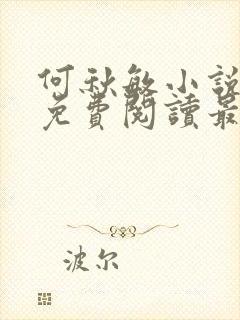 何秋敏小說
免費閱讀最
波尔